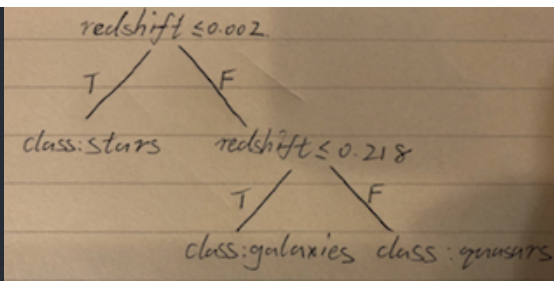 redshift ≤0.002
T F
class:stars redshift ≤ 0.218
T F
class:galaxies class : quasars